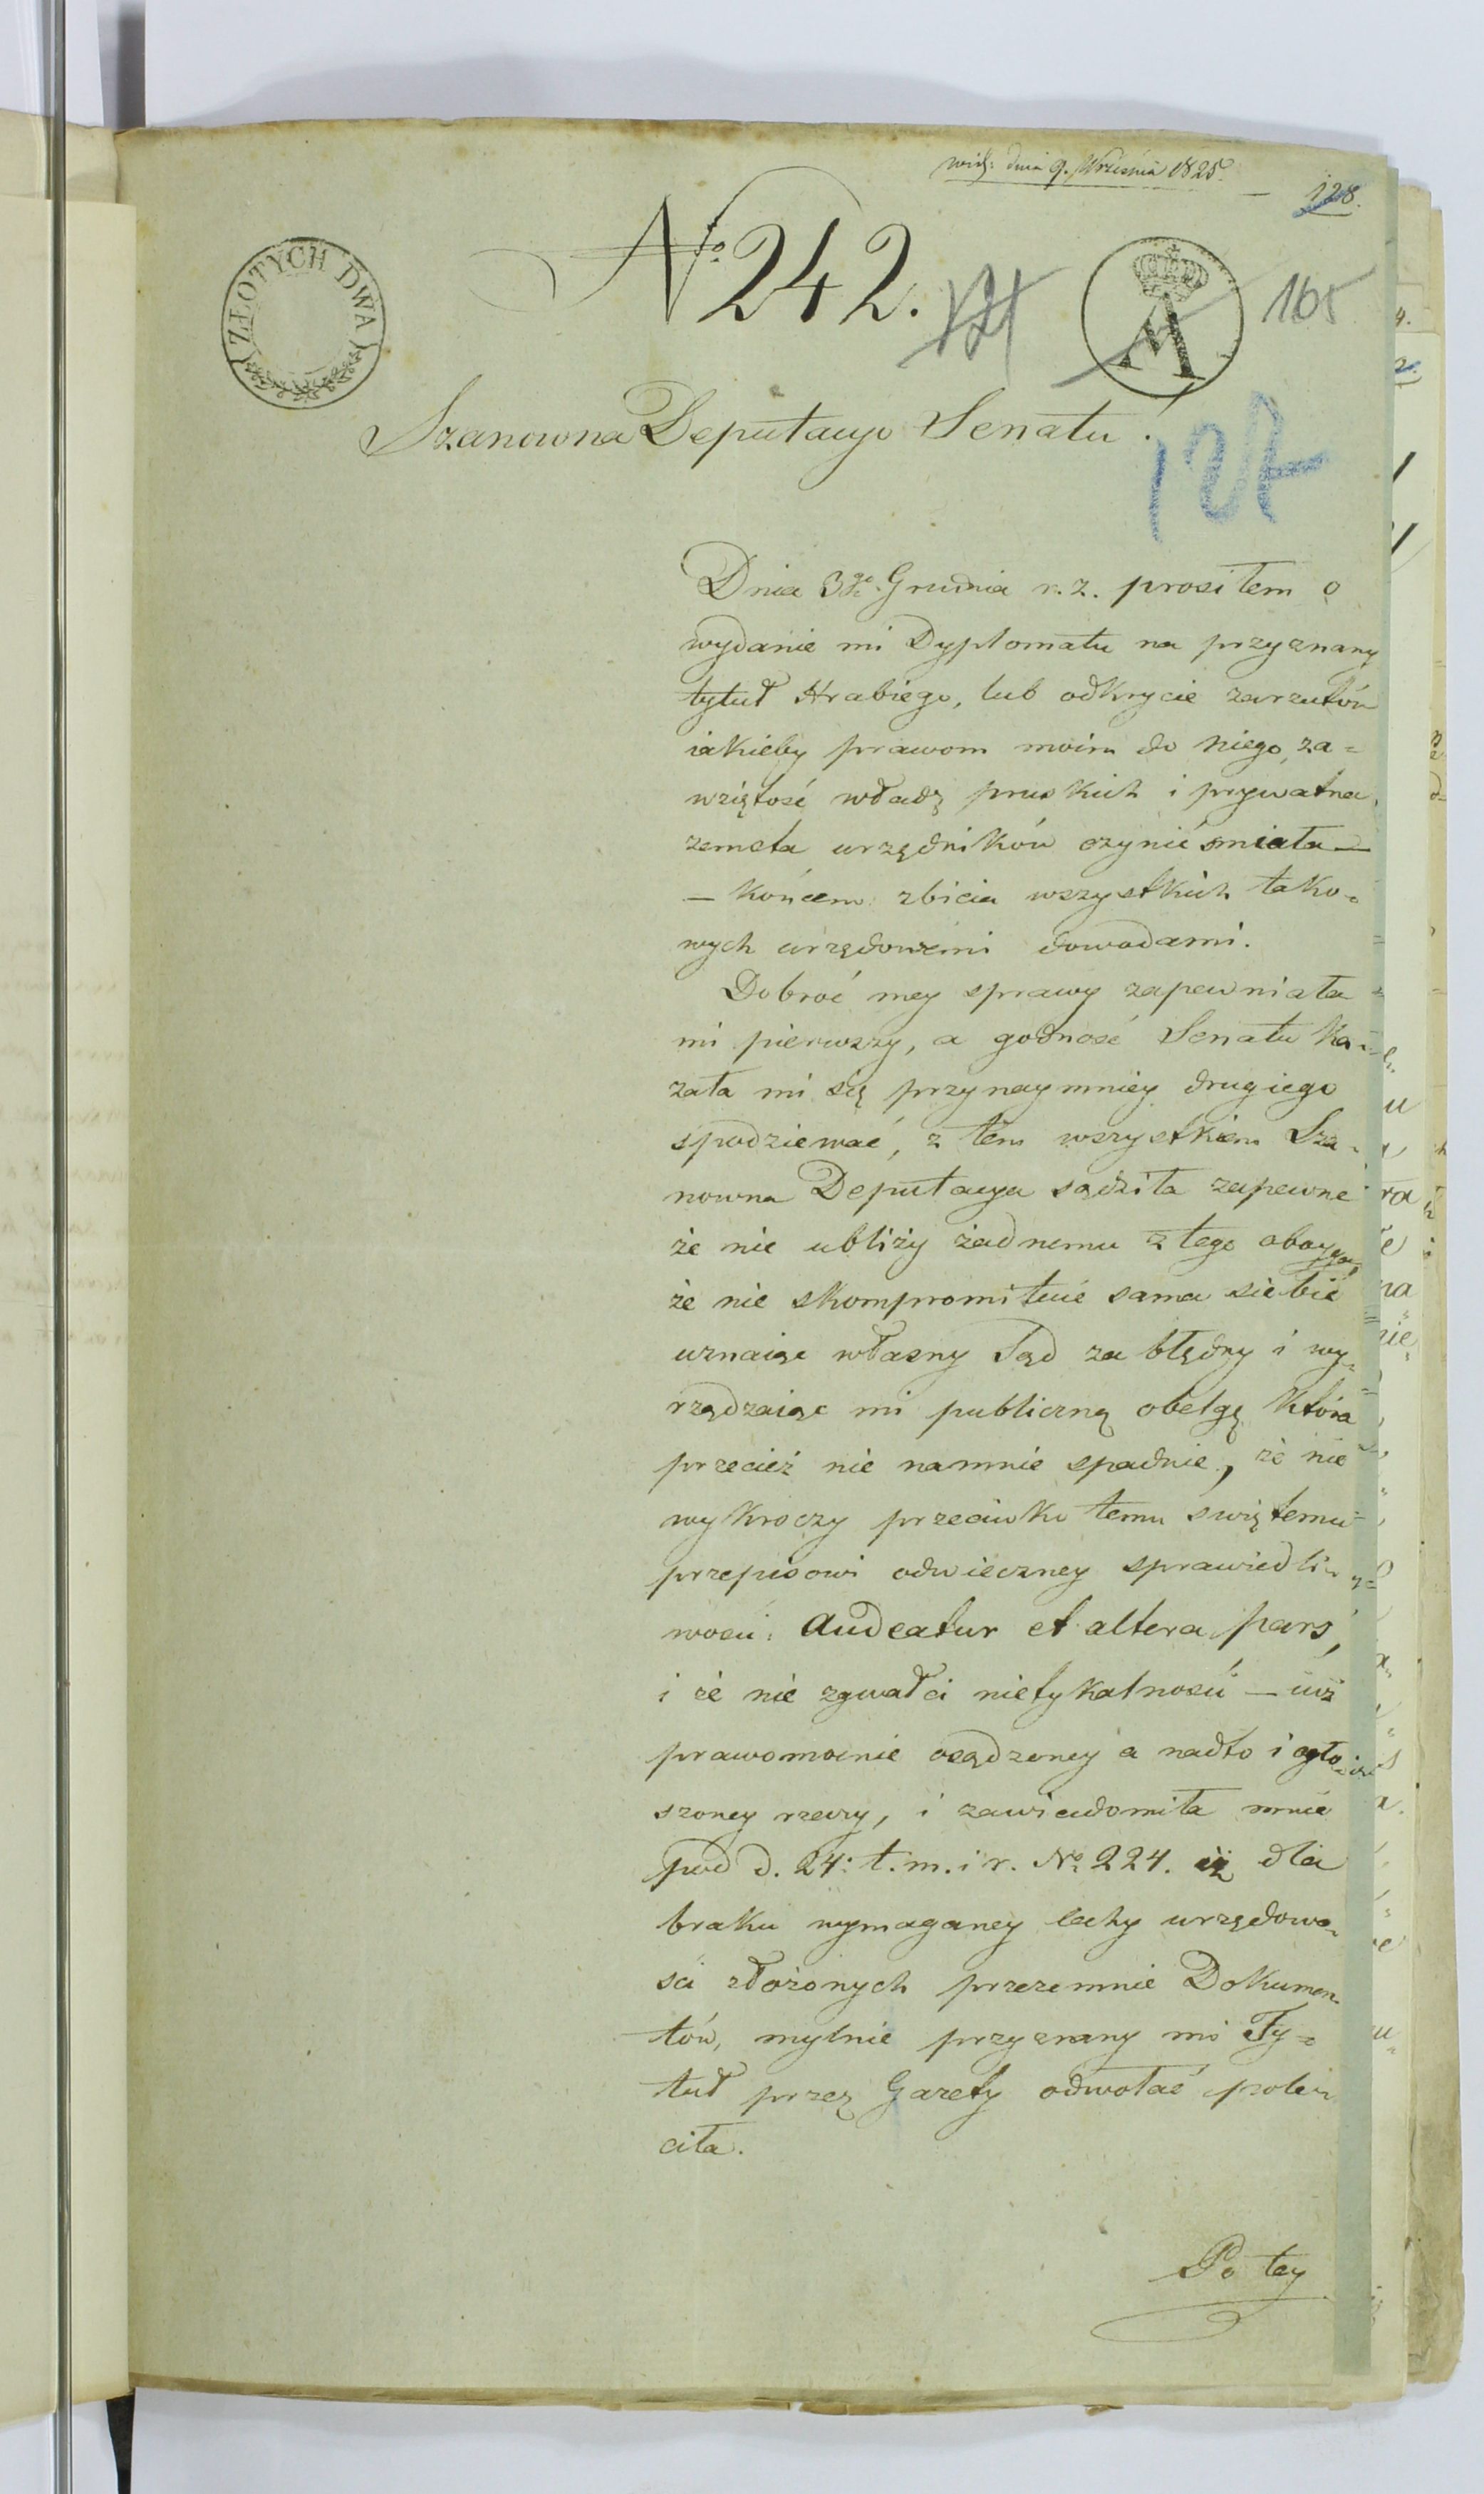 dnia 9. Września 1825.
128.
No 242.
165
ZŁOTYCH DWA
Szanowna Deputacyo Senatu!
127
Dnia 3go Grudnia r. z. prosiłem o
wydanie mi Dyplomatu na przyznany
tytuł Hrabiego, lub odkrycie zarzutów
iakieby prawom moim do niego, za=
wziętość władz pruskich i prywatna
zemsta urzędników czynić śmiała —
— końcem zbicia wszystkich tako=
wych urzędowemi dowodami.
Dobroć mey sprawy zapewniała
mi pierwszy, a godność Senatu ka=
zała mi się przynaymniey drugiego
spodziewać, z tem wszystkiem Sza=
nowna Deputacya sądziła zapewne
że nie ubliży żadnemu z tego oboyga,
że nie skompromituie sama siebie
uznaiąc własny Sąd za błędny i wy=
rządzaiąc mi publiczną obelgę która
przecież nie namnie spadnie, że nie
wykroczy przeciwko temu swiętemu
przepisowi odwieczney sprawiedli=
wości: Audeatur et altera pars,
i że nie zgwałci nietykalności — iuż
prawomocnie osądzoney a nadto i ogło=
szoney rzeczy, i zawiadomiła mnie
pod d. 24: t. m. i r. No 224. iż dla
braku wymaganey cechy urzędowo=
ści złożonych przezemnie Dokumen=
tów, mylnie przyznany mi Ty=
tuł przez Gazety odwołać pole=
ciła.
Po tey